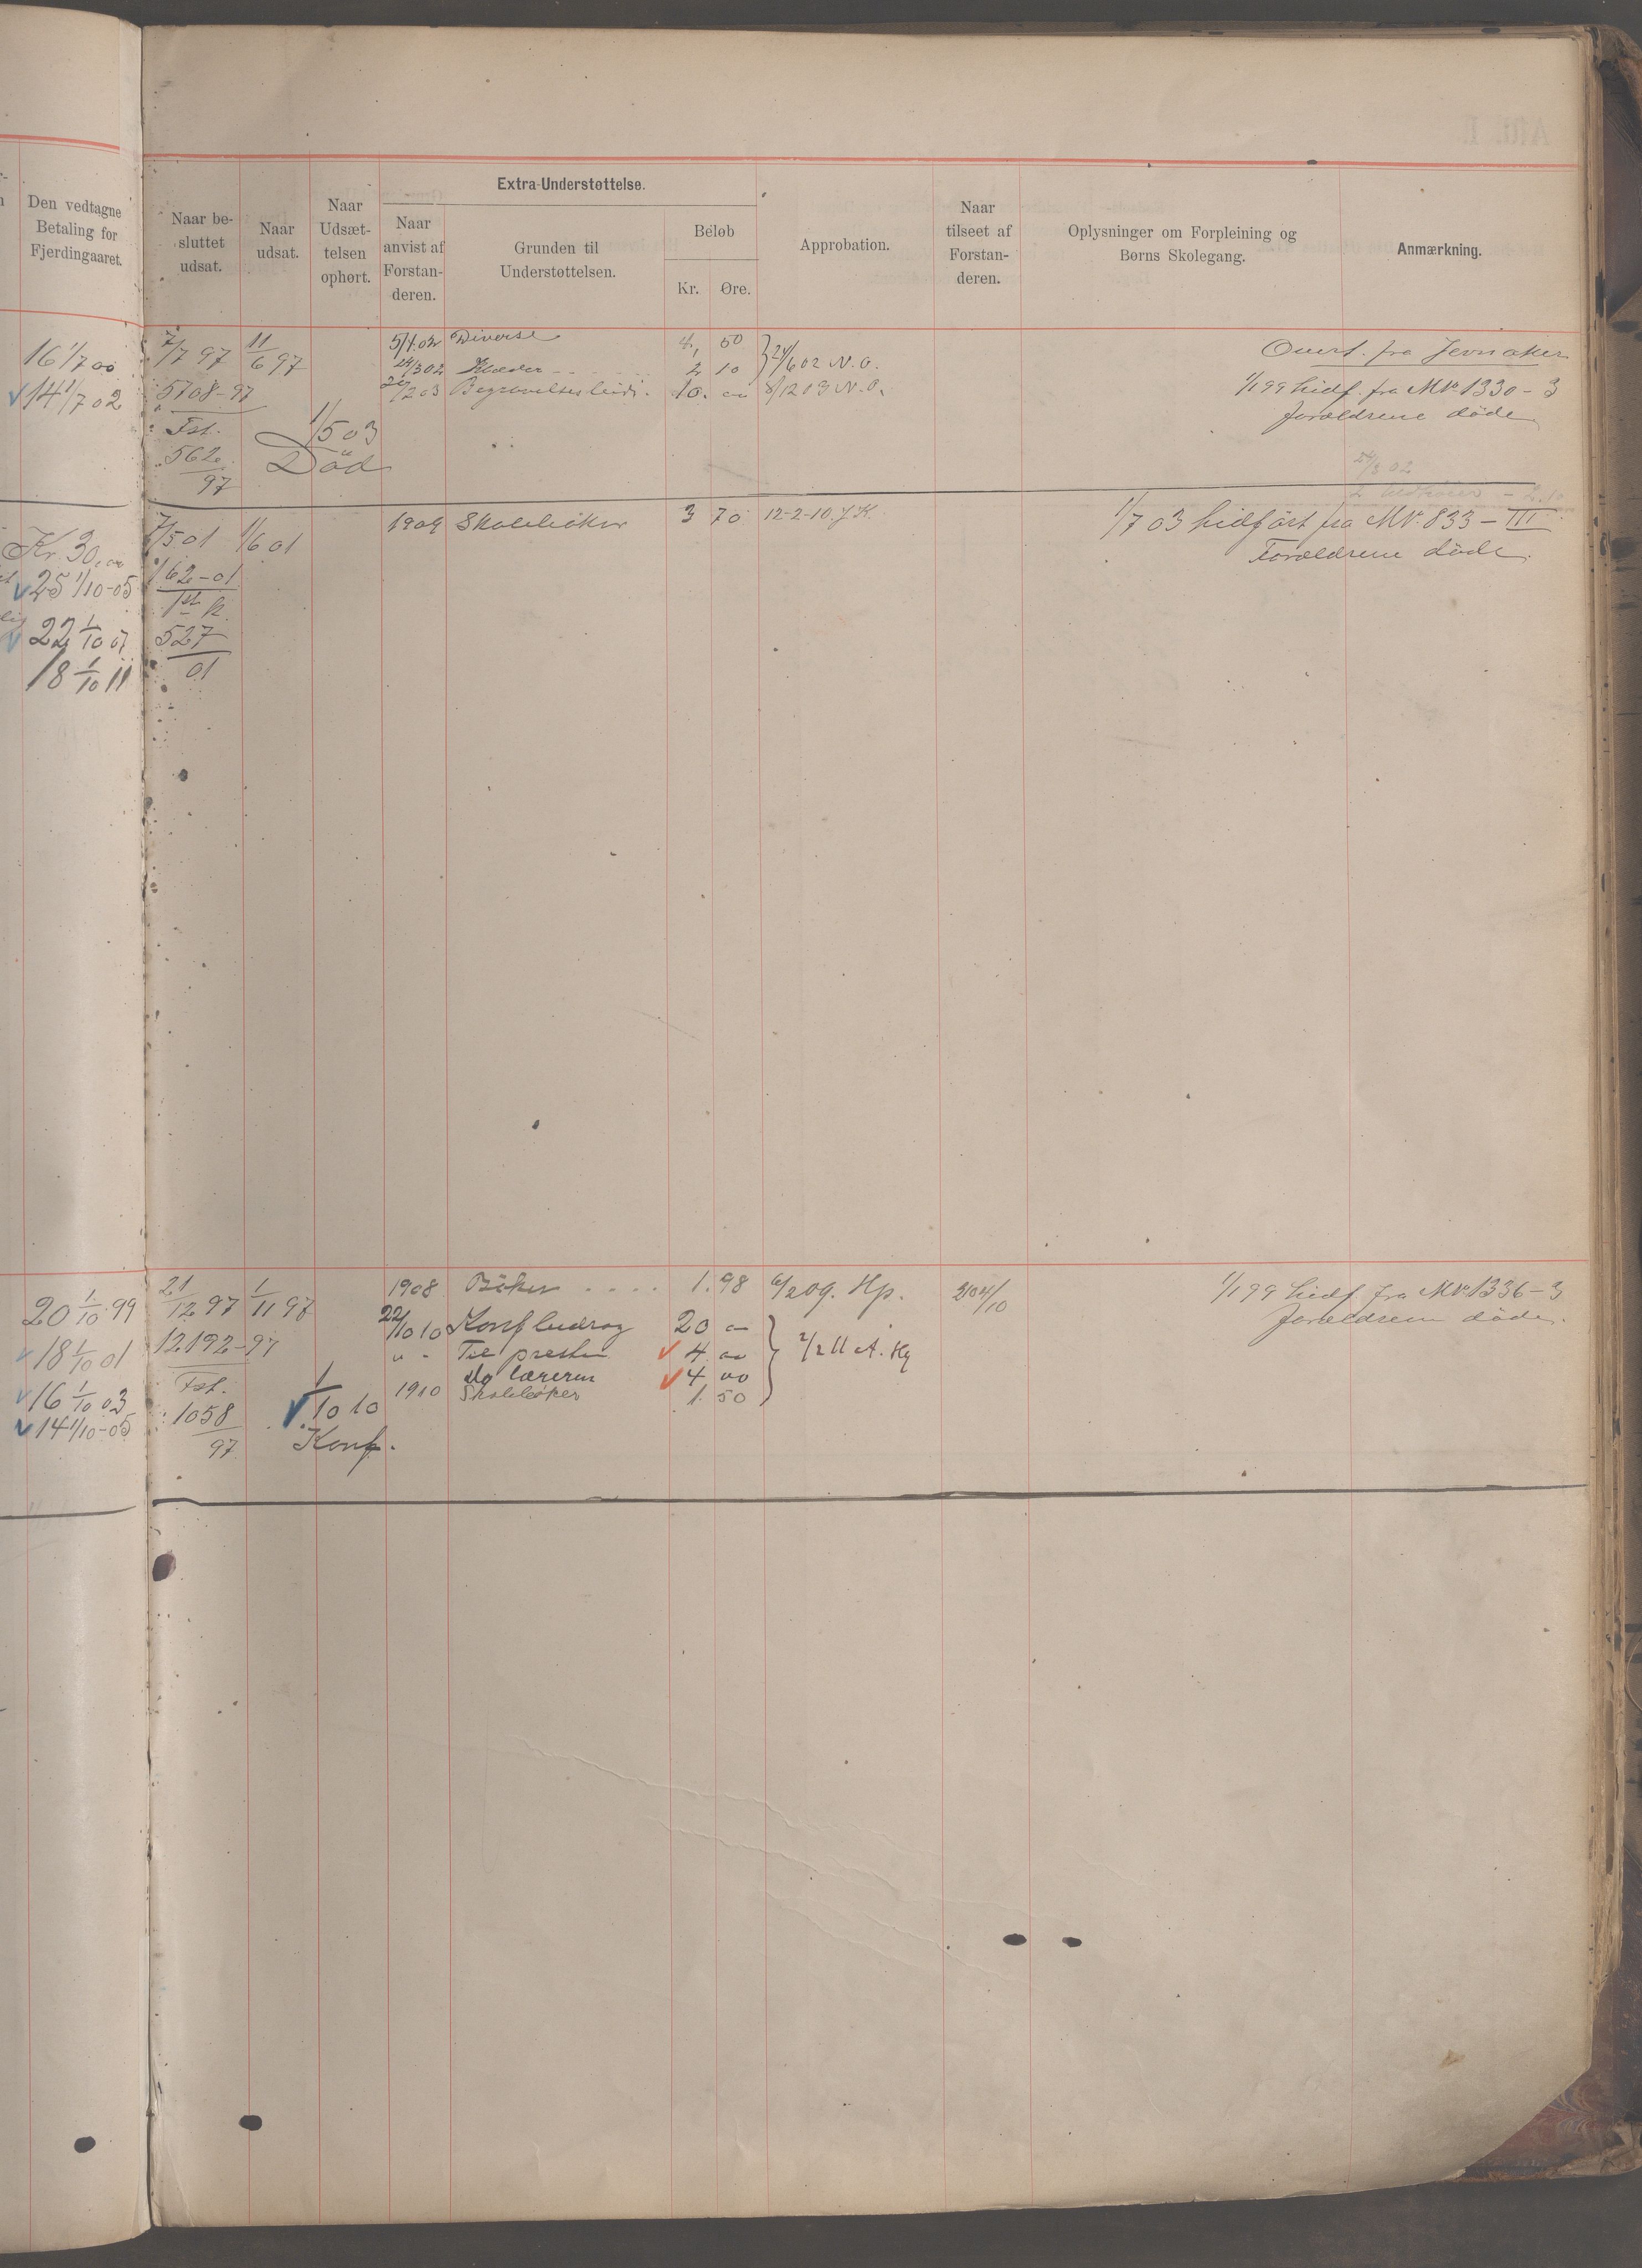 Den vedtagne
Betaling for
Fjerdingaaret.
Naar be-
sluttet
udsat.
Naar
udsat.
Naar
Udsæt-
telsen
ophørt.
Extra-Understøttelse.
Naar
anvist af
Forstan-
deren.
Grunden til
Understøttelsen.
Beløb
Kr. Øre.
Approbation.
Naar
tilseet af
Forstan-
deren.
Oplysninger om Forpleining og
Børns Skolegang.
Anmærkning.
16 1/7 00
14 1/7 02
7/7 97 11/6 97
5708-97
Fst.
562
97
1/5 03
Död
5/1.02 Diverse 4, 50
14/3 02 Klæder 2 10 24/6 02 N.O.
20/2 03 Begravelses 10. 8/12 03 N.O.
Overf. fra Jevnaker
1/1 99 hidf. fra Mk 1330-3
forældrene döde
24/3 02
Kr. 30.
25 1/10-05
22 1/10 07
18 1/10 11
7/5 01 1/6 01
162-01
527
01
1909 Skoleböker 3 70 12-2-10. J.K.
1/7 03 hidfört fra Mk. 833-III
Forældrene döde.
20 1/10.99
18 1/10 01
16 1/10 03
14 1/10-05
21/12 97 1/11 97
12192-97
Fst.
1058
97
1/10 10
Konf.
1908 Böker .... 1.98 6/2 09. Hp.
22/10 10 Konfbidrag 20
" - Til presten 4 2/2 11 A. Hg
do læreren 4 00
1910 Skoleböker 1.50
1/1 99 hidf. fra Mk 1336-3
forældrene döde.